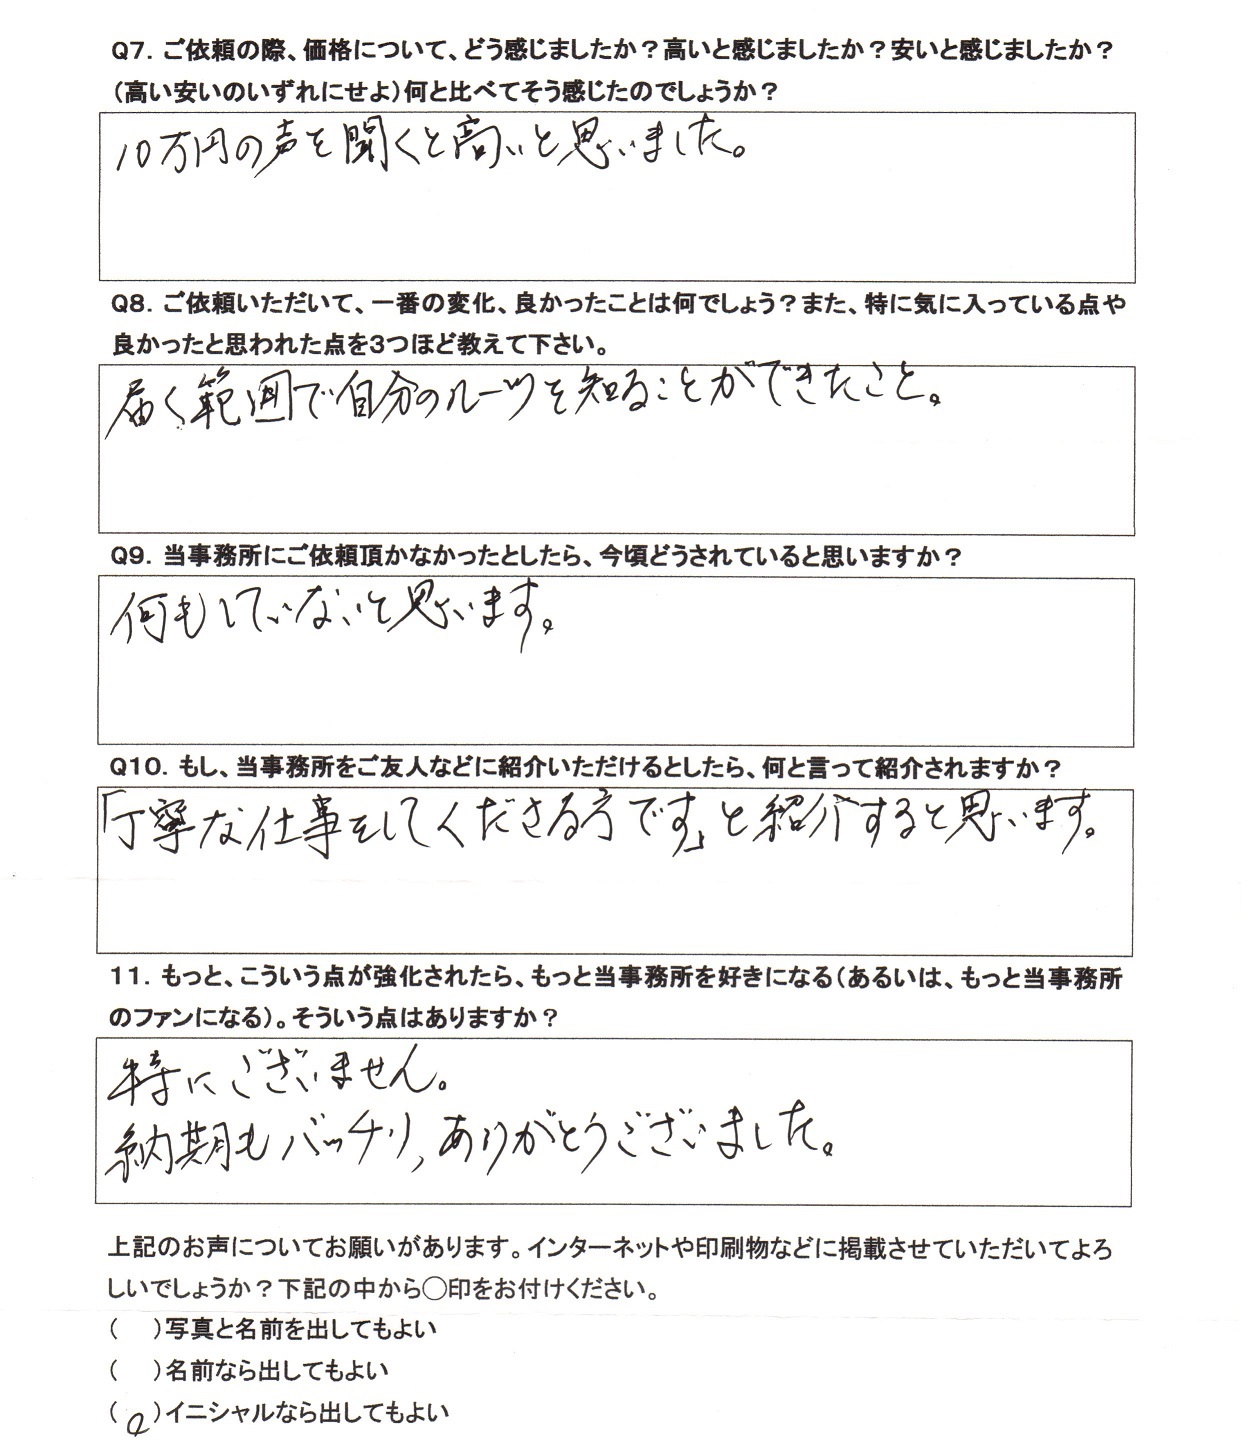 Q7．ご依頼の際、価格について、どう感じましたか？高いと感じましたか？安いと感じましたか？
（高い安いのいずれにせよ）何と比べてそう感じたのでしょうか？
10万円の声を聞くと高いと思いました。
Q8．ご依頼いただいて、一番の変化、良かったことは何でしょう？また、特に気に入っている点や
良かったと思われた点を3つほど教えて下さい。
届く範囲で自分のルーツを知ることができたこと。
Q9．当事務所にご依頼頂かなかったとしたら、今頃どうされていると思いますか？
何もしていないと思います。
Q10．もし、当事務所をご友人などに紹介いただけるとしたら、何と言って紹介されますか？
「丁寧な仕事をしてくださる方です」と紹介すると思います。
11．もっと、こういう点が強化されたら、もっと当事務所を好きになる（あるいは、もっと当事務所
のファンになる）。そういう点はありますか？
特にございません。
納期もバッチリ，ありがとうございました。
上記のお声についてお願いがあります。インターネットや印刷物などに掲載させていただいてよろ
しいでしょうか？下記の中から○印をお付けください。
（　）写真と名前を出してもよい
（　）名前なら出してもよい
（○）イニシャルなら出してもよい